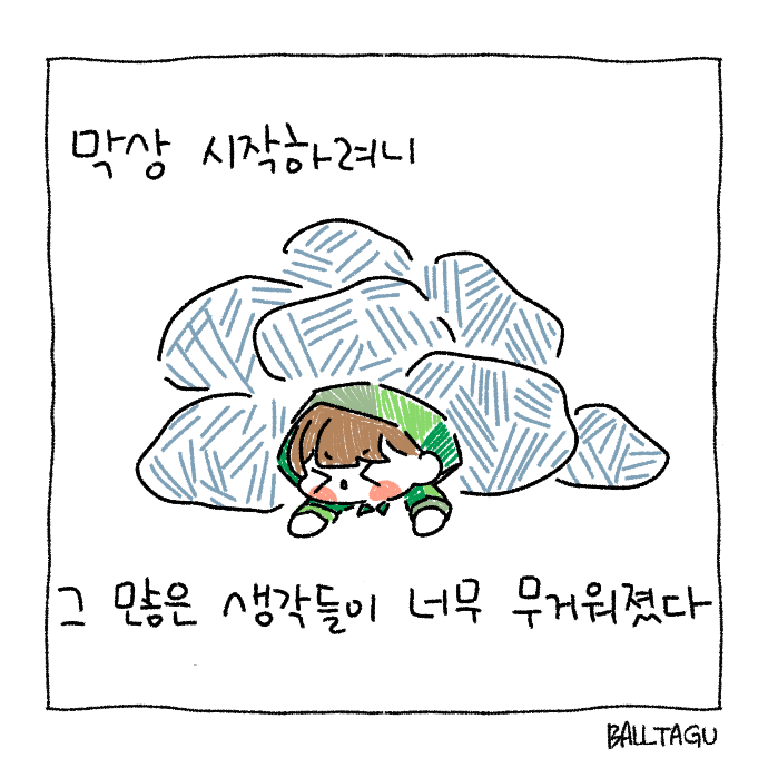 막상 시작하려니
그 많은 생각들이 너무 무거워졌다
BALLTAGU